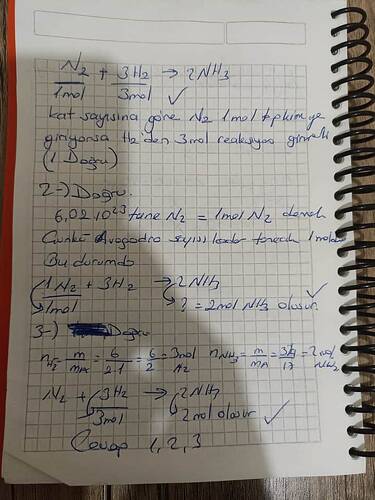 N₂ + 3H₂ → 2NH₃
1mol 3mol ✓
kat sayısına göre N₂ 1mol tepkimeye
giriyorsa H₂ den 3mol reaksiyona girmeli
(1 Doğru)
2-) Doğru.
6,02 10²³ tane N₂ = 1mol N₂ demek
Çünkü Avogadro sayısı kadar tanecik 1moldür
Bu durumda
1N₂ + 3H₂ → 2NH₃
1mol ? = 2mol NH₃ oluşur. ✓
3-) Doğru
n_H₂ = m/MA = 6/2.1 = 6/2 = 3mol H₂ n_NH₃ = m/MA = 34/17 = 2mol NH₃
N₂ + 3H₂ → 2NH₃
3mol 2mol oluşur ✓
Cevap 1, 2, 3